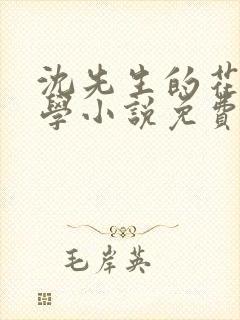 沈先生的花
學小說免費
毛岸英